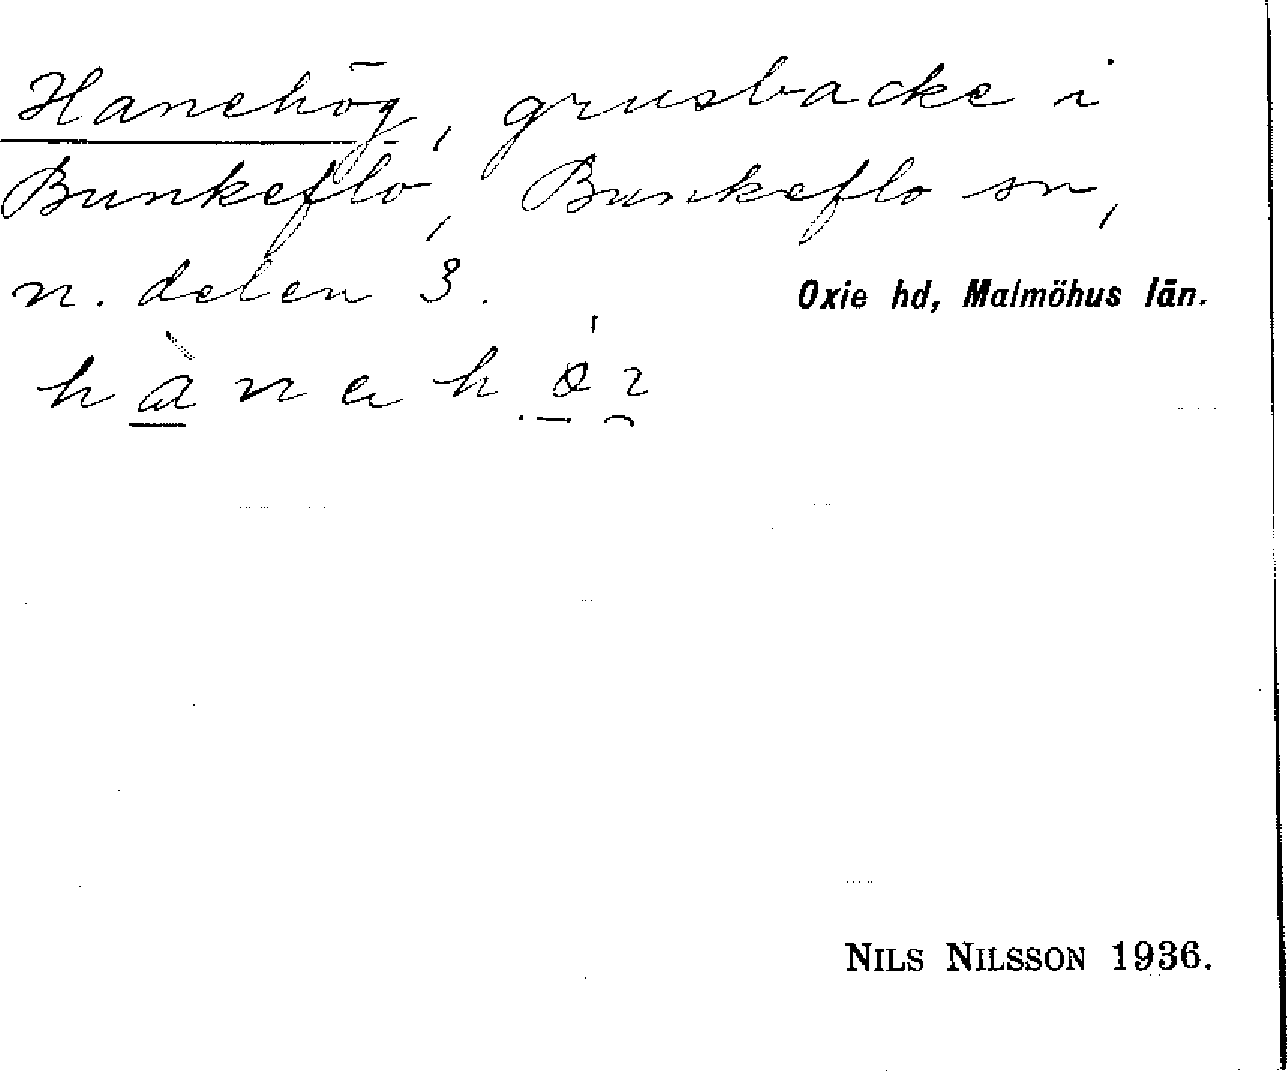 Hanehög, grusbacke i
Bunkeflo, Bunkeflo sn,
n. delen 3.
Oxie hd, Malmöhus län.
NILS NILSSON 1936.